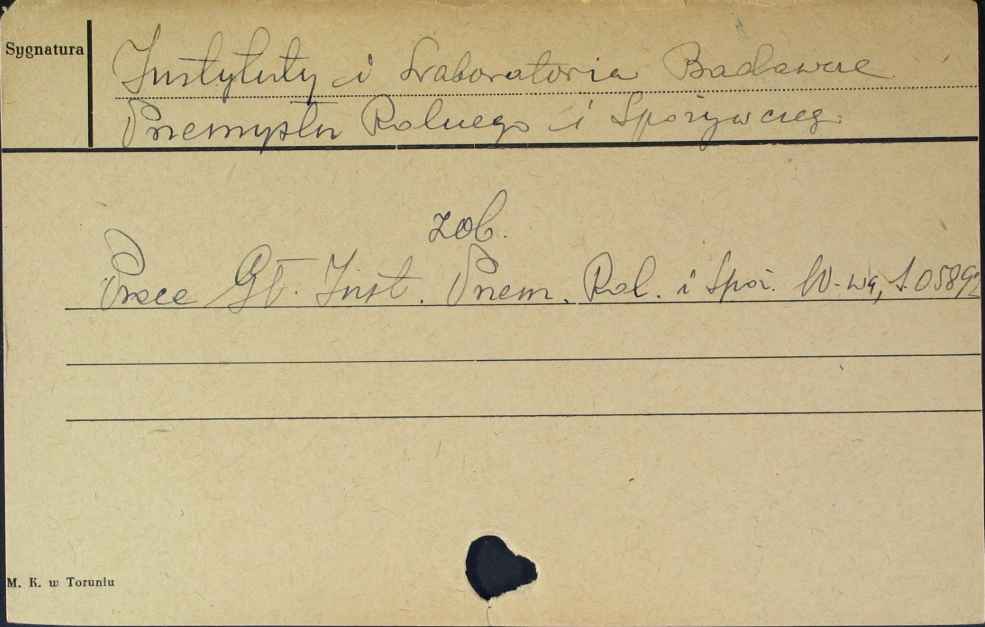 Sygnatura
Instytuty i Laboratoria Badawcze
Przemysłu Rolnego i Spożywczeg.
zob.
Prace Gł. Inst. Przem. Rol. i Spoż. W-wa, S.05892
M. K. w Toruniu